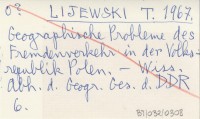 0? LIJEWSKI T. 1967.
Geographische Probleme des
Fremdenverkehr in der Volks-
republik Polen. – Wiss.
Abh. d. Geogr. Ges. d. DDR
6.
B11032/0308